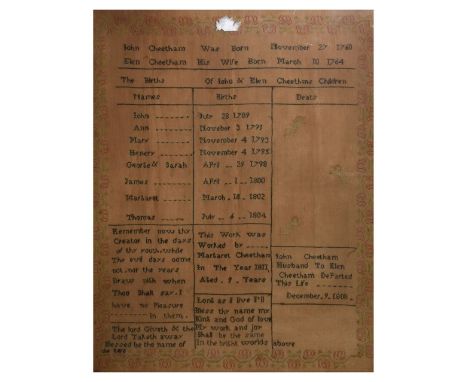 John Cheetham Was Born November 27 1760
Elen Cheetham His Wife Born March 10 1764
The Births Of John & Elen Cheethams Children
Names Births Deats
John July 28 1789
Ann November 3 1791
Mary November 4 1793
Henery November 4 1795
George & Sarah April 29 1798
James April 1 1800
Margaret March 18 1802
Thomas July 4 1804
Remember now thy
Creator in the days
of thy youth while
The evil days come
not nor the years
Draw nigh when
Thou Shalt say I
have no Pleasure
in them.
The lord Giveth & the
Lord Taketh away
Blessed be the name of
the lord
This Work was
Worked by
Margaret Cheetham
In The Year 1811
Aged 9 Years
Lord as I live I'll
Bless thy name my
King and God of love
My work and joy
Shall be the same
In the bright worlds above
John Cheetham
Husband To Elen
Cheetham DeParted
This Life
December, 9, 1808.